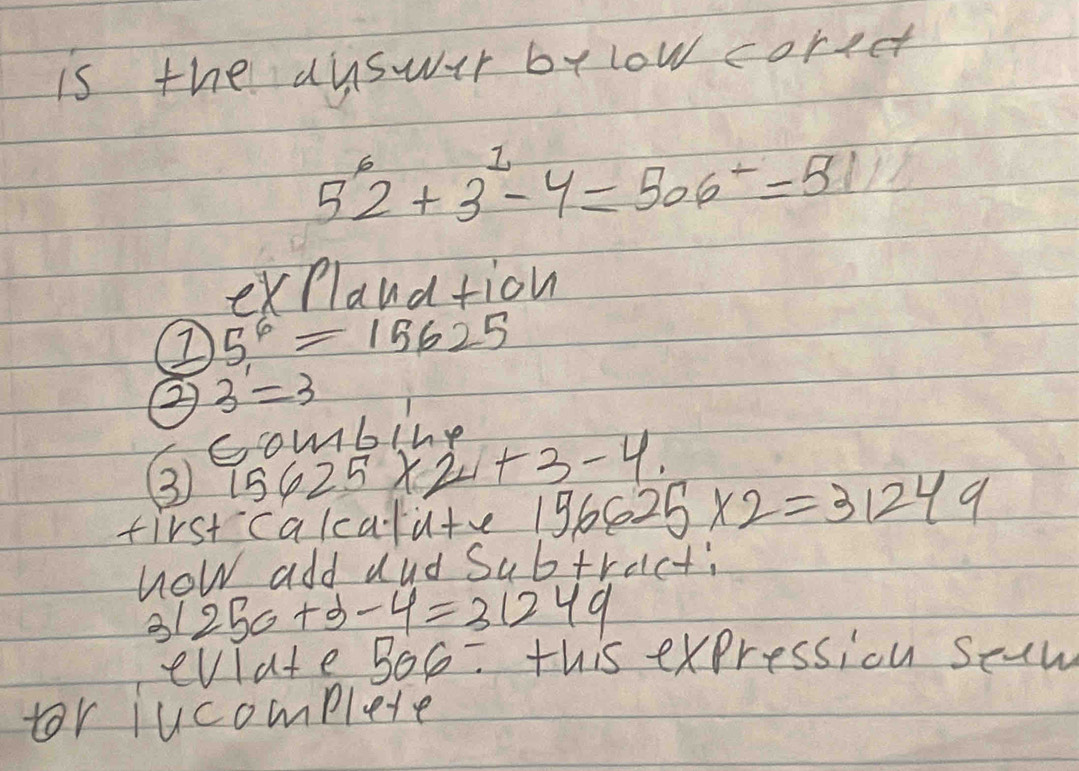 is the answer below corect
5⁶2 + 3¹ - 4 = 506⁺ = 51
explanation
① 5⁶ = 15625
② 3¹ = 3
combine
③ 15625 x 2 + 3 - 4.
first calcalate 156625 x 2 = 31249
now add and Subtract:
31250 + 3 - 4 = 31249
eviate 506 ÷ this expression
or incomplete